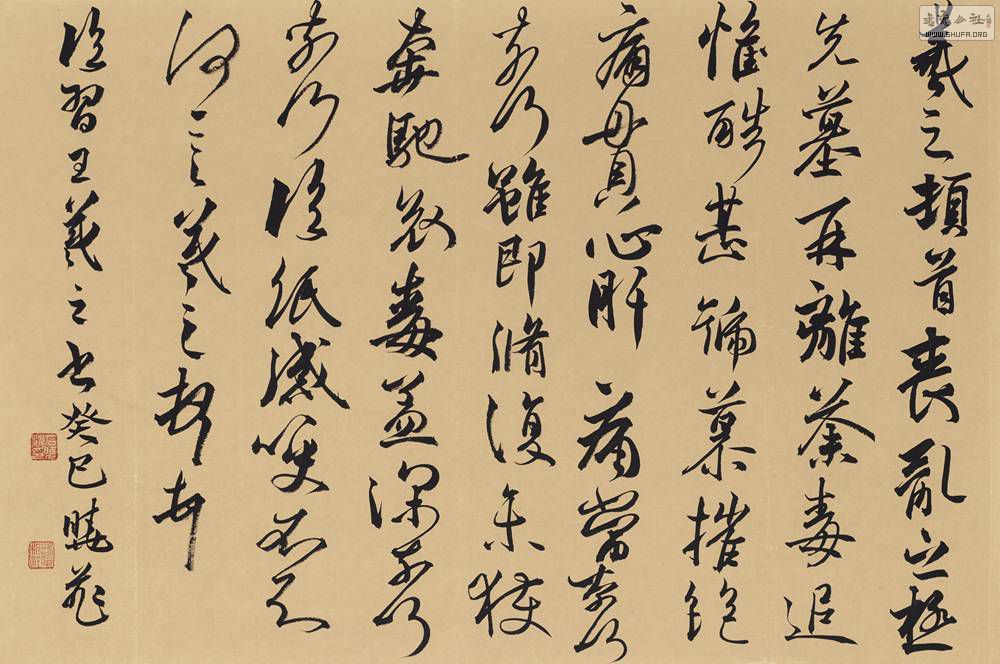 羲之頓首喪亂之極
先墓再離荼毒追
惟酷甚號慕摧絕
痛貫心肝痛當奈何
奈何雖即脩復未獲
奔馳哀毒益深奈何
奈何臨紙感哽不知
何言羲之頓首頓首
臨習王羲之書癸巳曉
書法公社
WWW.SHUFA.ORG